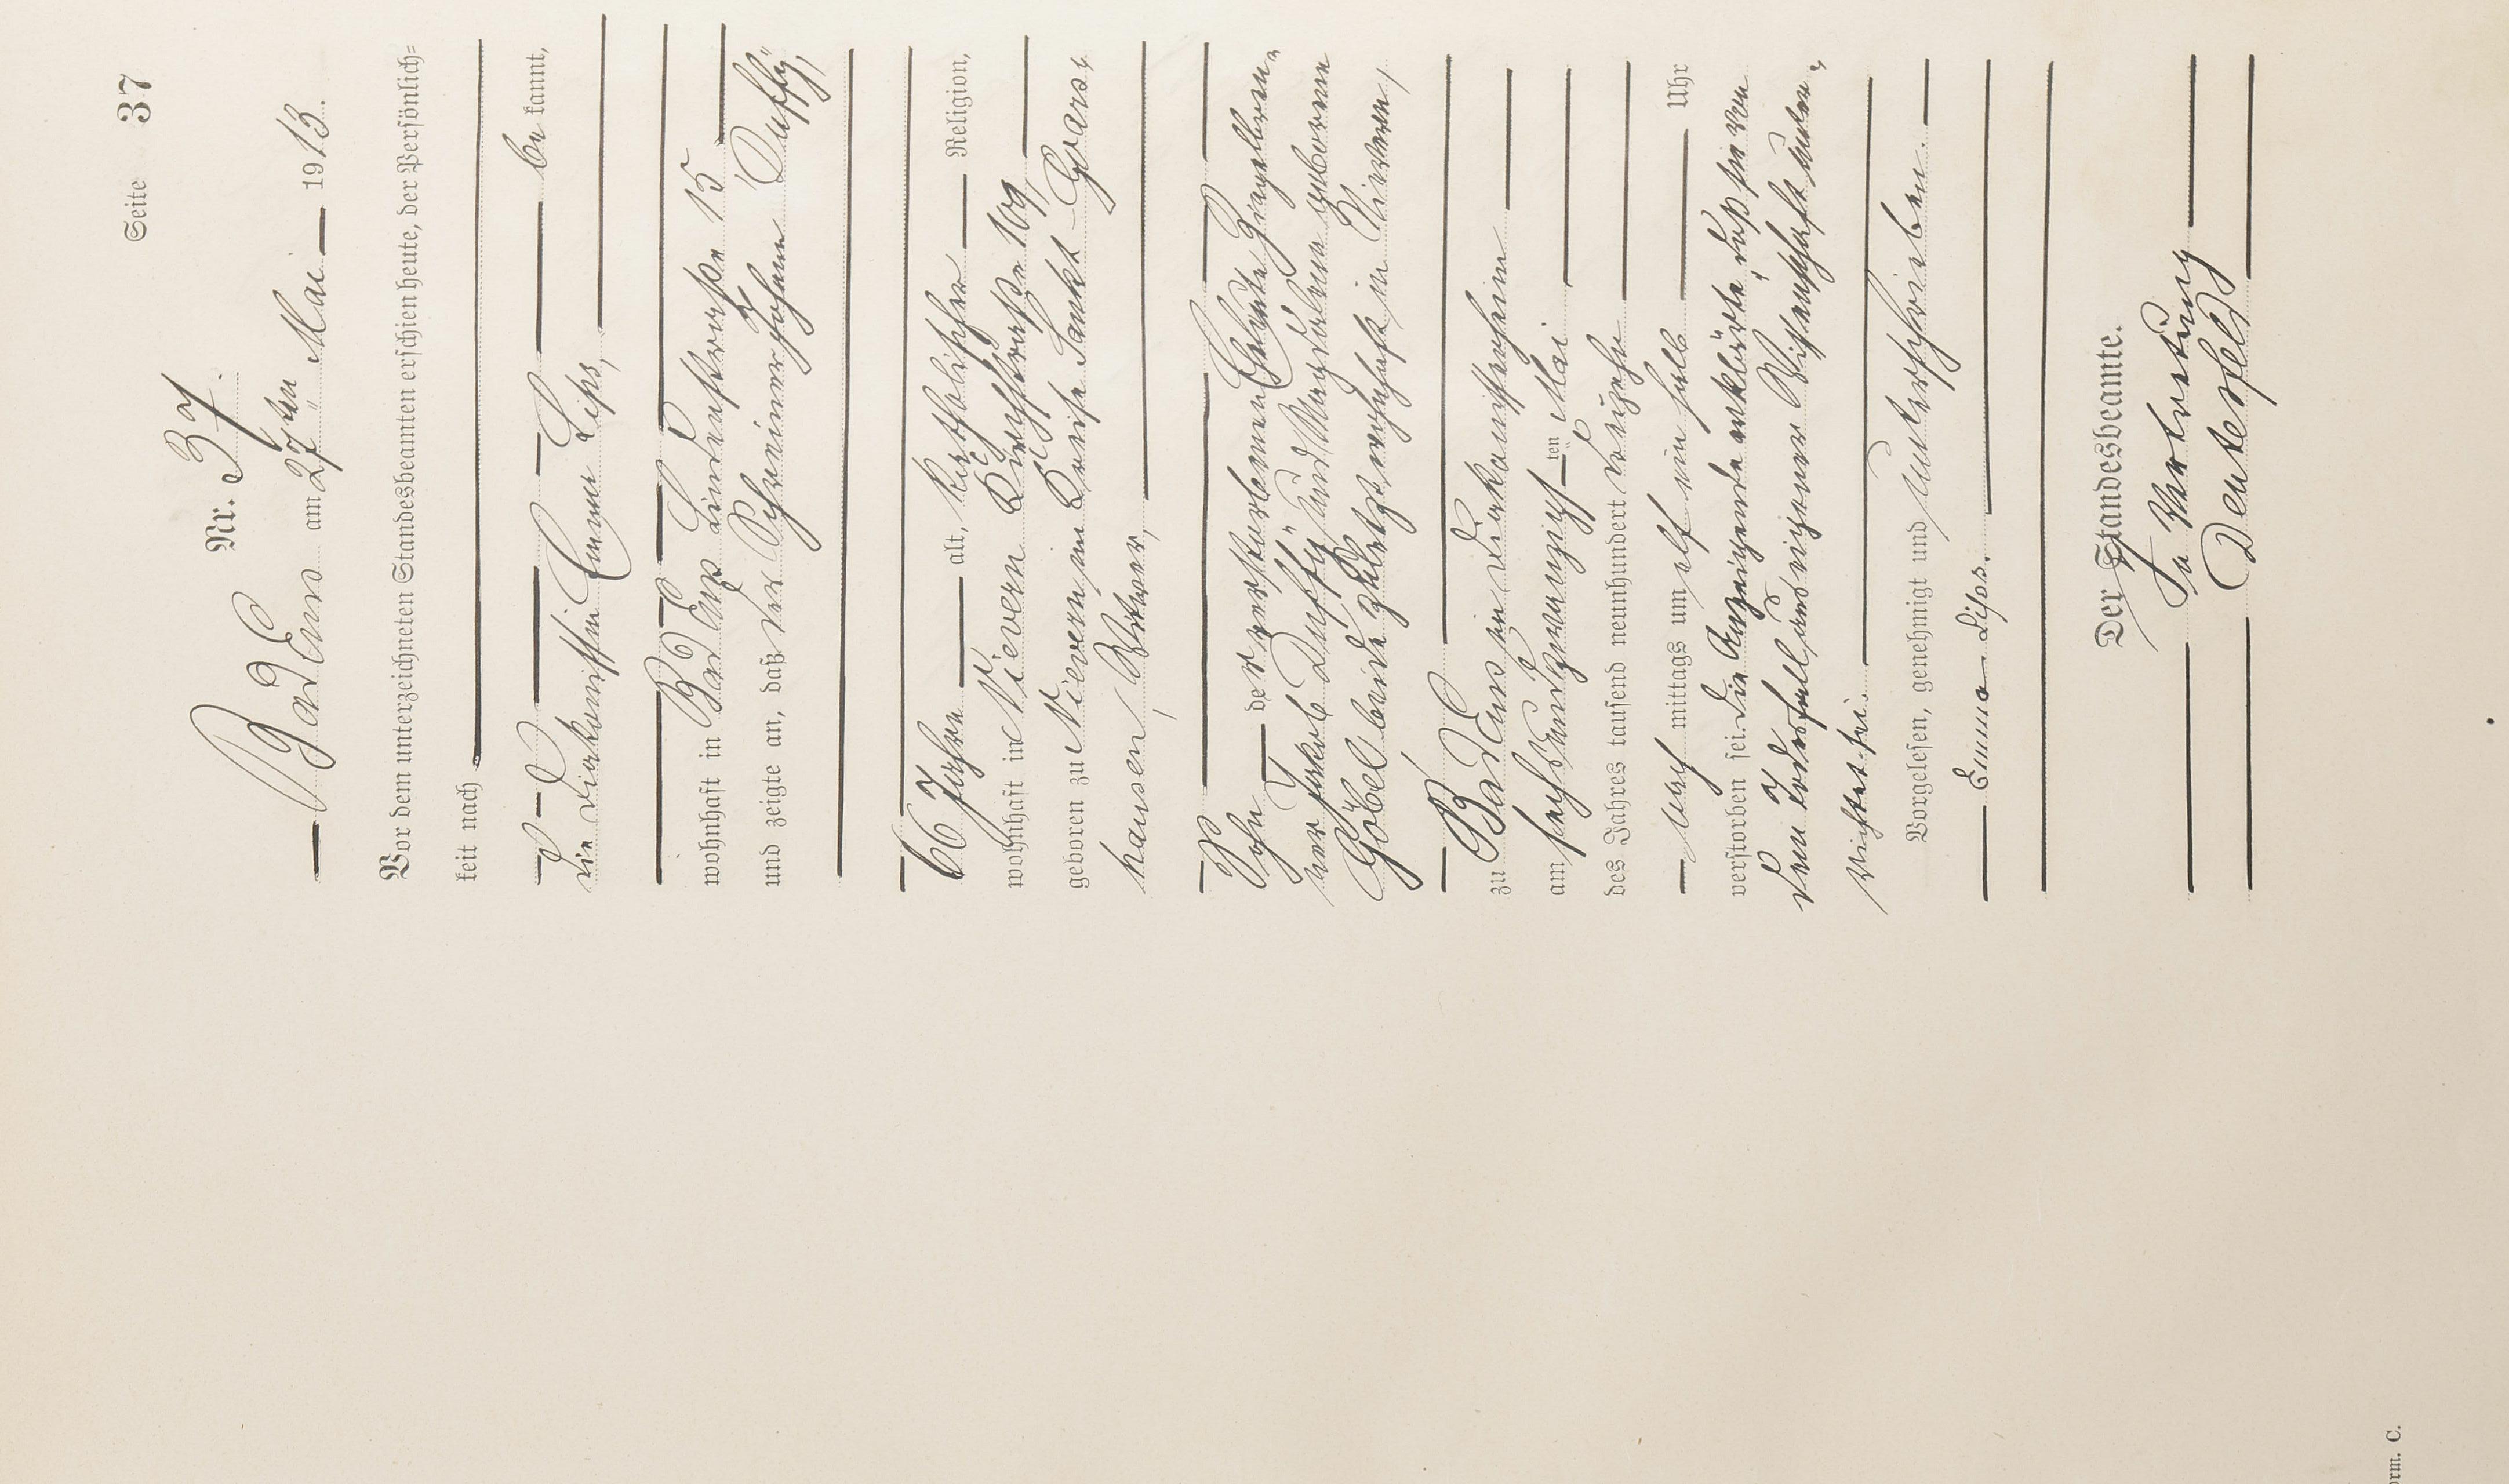 Seite 37
Nr. 37.
Bad Ems am 27ten Mai 1913.
Vor dem unterzeichneten Standesbeamten erschien heute, der Persönlich-
keit nach
be kannt,
die Diakonissin Emma Lips,
wohnhaft in Bad Ems Lindenstraße 15
und zeigte an, daß der Schreiner Johann Duffÿ,
66 Jahre alt, katholischer Religion,
wohnhaft in Nievern Kirchstraße 109,
geboren zu Nievern im Kreise Sankt-Goars-
hausen, Witwer,
Sohn der verstorbenen Eheleute
Jakob Duffÿ und Magdalena geborene
Göbel beide zuletzt wohnhaft in Nievern,
zu Bad Ems im Diakonissenheim
am sechsundzwanzigsten Mai
des Jahres tausend neunhundert dreizehn
nach mittags um elf ein halb Uhr
verstorben sei. Die Anzeigende erklärte, daß sie von
dem Todesfall aus eigener Wissenschaft unter-
richtet sei.
Vorgelesen, genehmigt und unterschrieben.
Emma Lips.
Der Standesbeamte.
In Vertretung